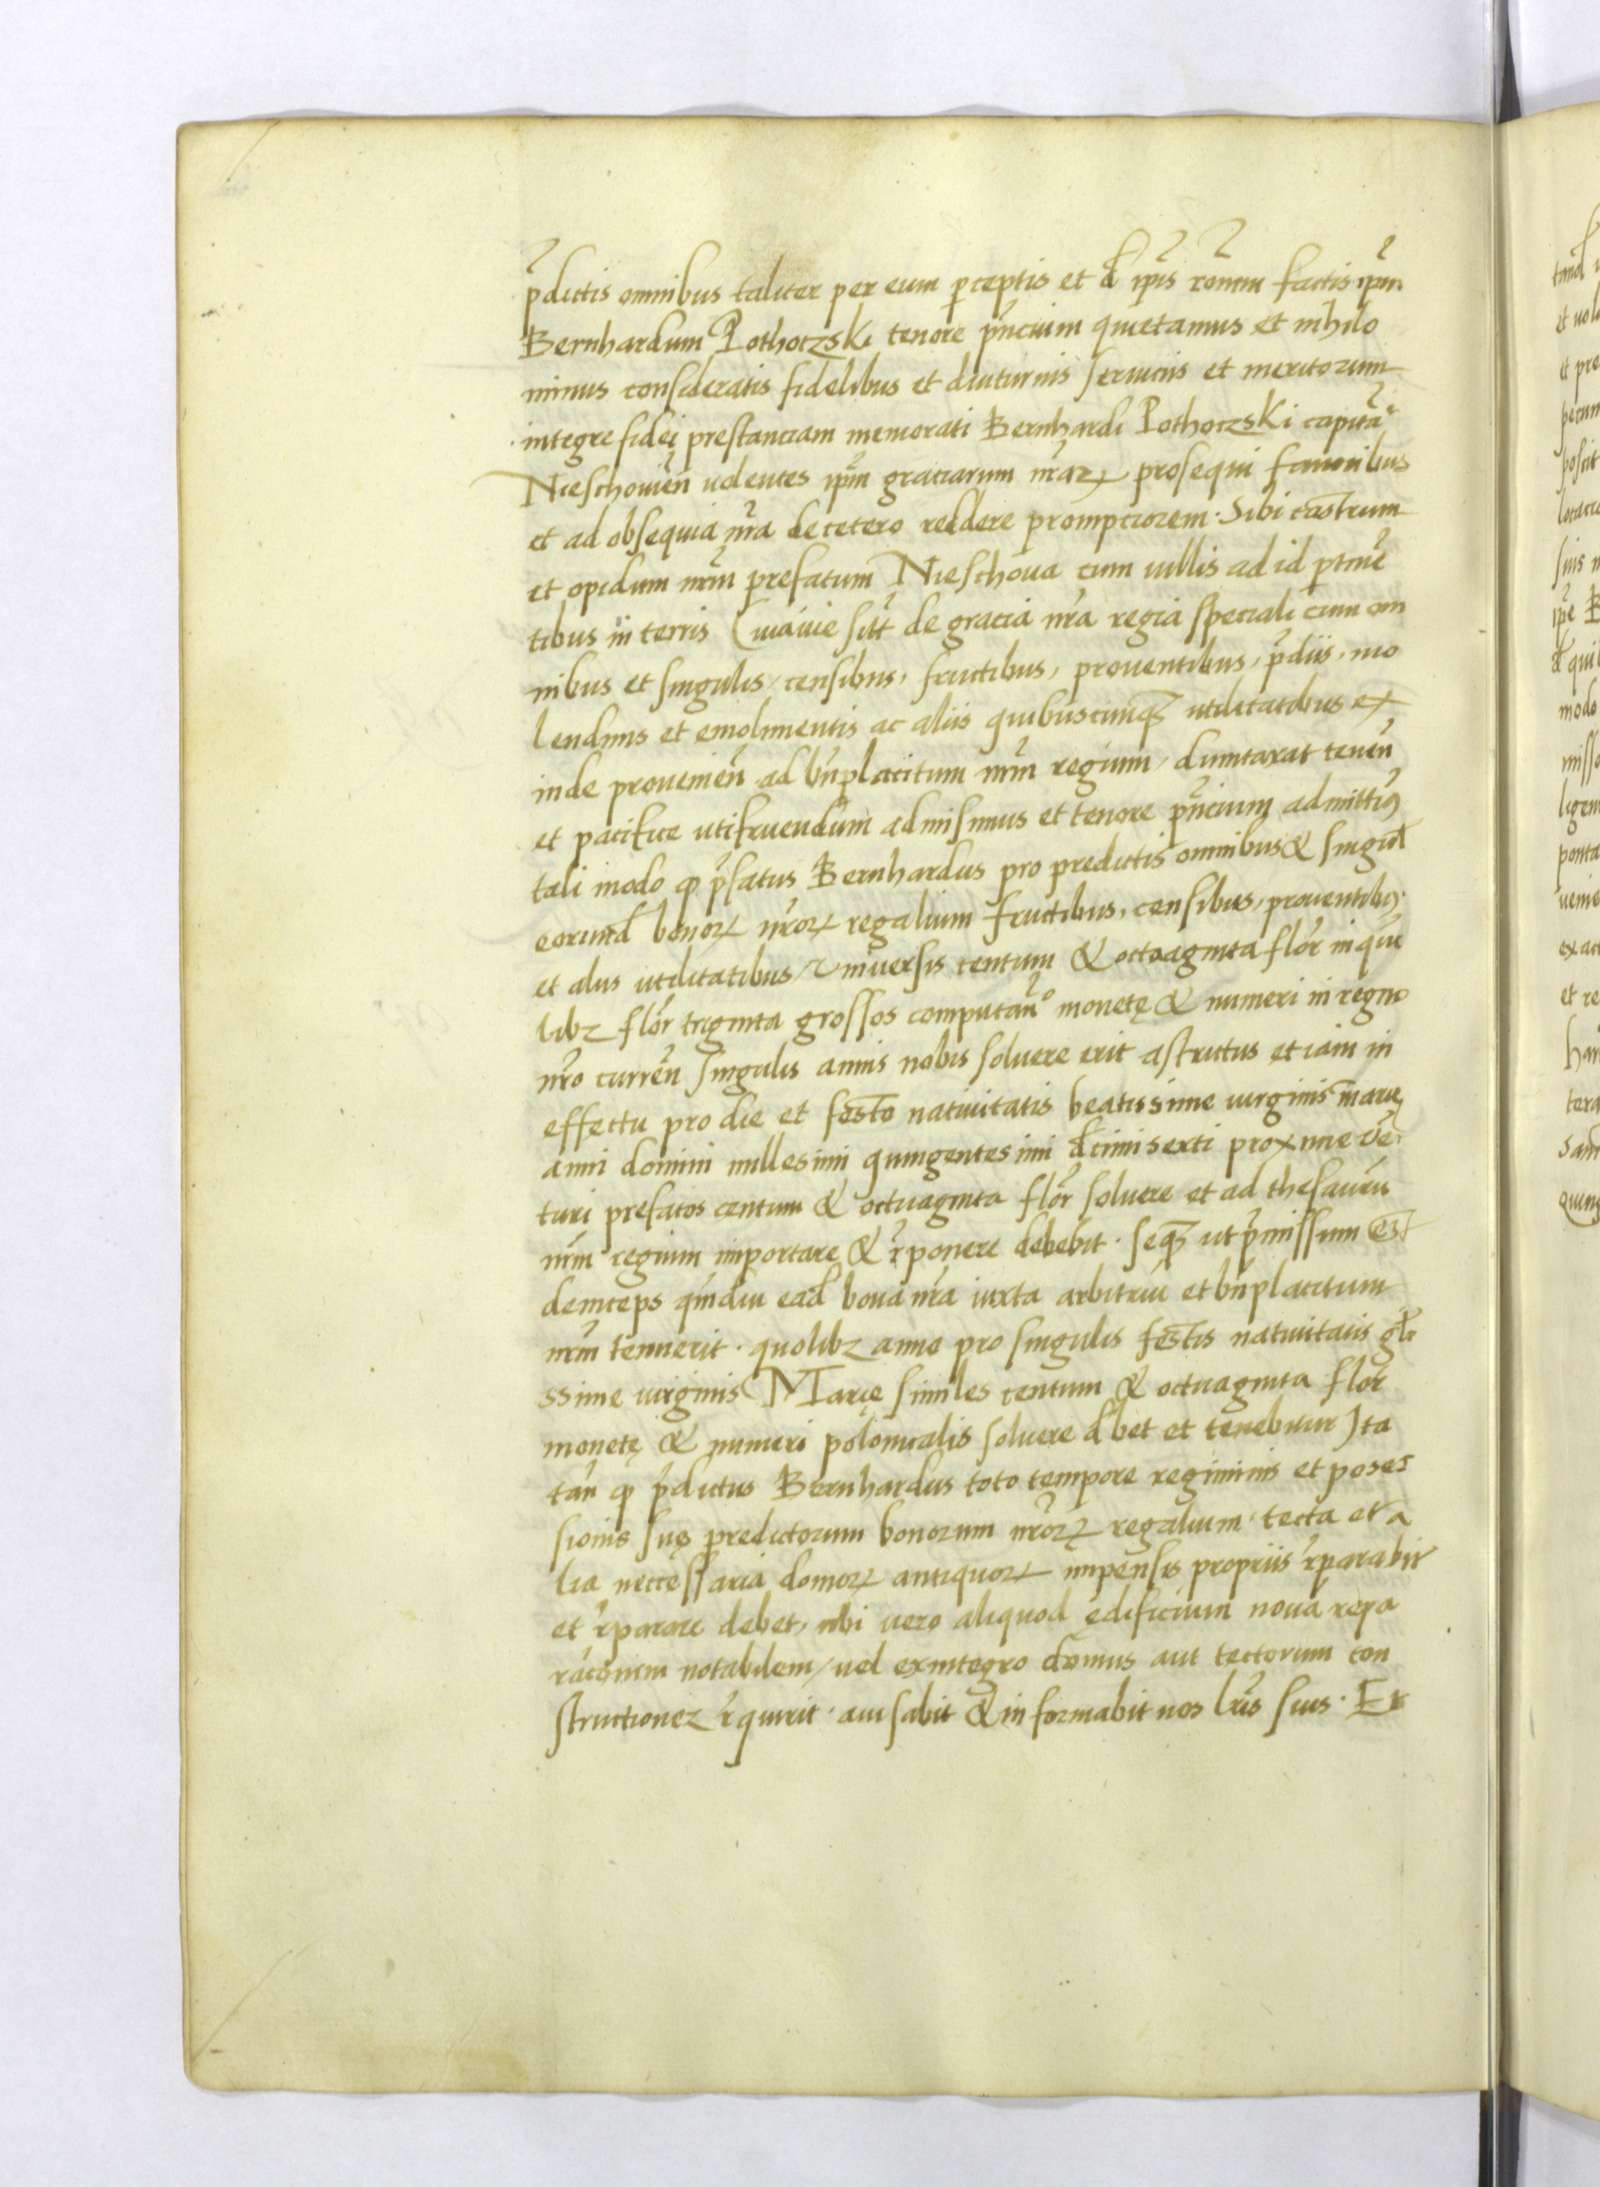 p̃dictis omnibus taliter per eum perceptis et d ip̃is rõnem factis ip̃m
Bernhardum Pothoczski tenore p̃ncium quietamus et nihilo
minus consideratis fidelibus et diuturnis seruiciis et meritorum
integre fidei prestanciam memorati Bernhardi Pothoczski capitã
Nieschouieñ uolentes ip̃m graciarum nr̃aꝝ prosequi fauoribus
et ad obsequia nr̃a de cetero reddere promptiorem. Sibi castrum
et opidum nr̃m prefatum Nieschoua cum uillis ad id ptineñ
tibus in terris Cuiauie sitt de gracia nr̃a regia speciali cum om
nibus et singulis, censibus, fructibus, prouentibus, p̃diis, mo
lendinis et emolimentis ac aliis quibuscunqꝫ utilitatibus ex
inde prouenieñ ad bñplacitum nr̃m regium, dumtaxat teneñ
et pacifice utifruendum admisimus et tenore p̃ncium admittimꝯ
tali modo ꝙ p̃fatus Bernhardus pro predictis omnibus & singul
eorund bonoꝝ nr̃oꝝ regalium fructibus, censibus, prouentibꝯ
et aliis utilitatibus, Vniuersis centum & octoaginta flor̃ in quo
libꝫ flor̃ triginta grossos computañᵒ monetę & numeri in regno
nr̃o curreñ singulis annis nobis soluere erit astrictus et iam in
effectu pro die et festo natiuitatis beatissime uirginis marie
anni domini millesimi quingentesimi decimisexti proxime ve
turi prefatos centum & octuaginta flor̃ soluere et ad thesaurũ
nr̃m regium importare & r̃ponere debebit. Seqꝫ ut p̃missum est
deinceps q̃mdiu ead bona nr̃a iuxta arbitriũ et bñplacitum
nr̃m tenuerit. quolibꝫ anno pro singulis festis natiuitatis gl̃i
ssime uirginis Marię similes centum & octuaginta flor̃
monetę & numeri polonicalis soluere debet et tenebitur Ita
tañ ꝙ p̃dictus Bernhardus toto tempore regiminis et poses
sionis suę predictorum bonorum nr̃oꝝ regalium, tecta et a
lia neccessaria domoꝝ antiquoꝝ impensis propriis r̃parabit
et r̃parare debet, ubi vero aliquod edificium noua repa
racõnem notabilem, uel exintegro domus aut tectorum con
structionez r̃quirit. auisabit & informabit nos lr̃is suis. Et